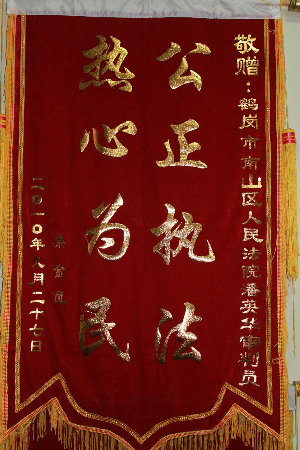 敬赠：鹤岗市南山区人民法院潘英华审判员
公正执法
热心为民
二〇一〇年九月二十七日